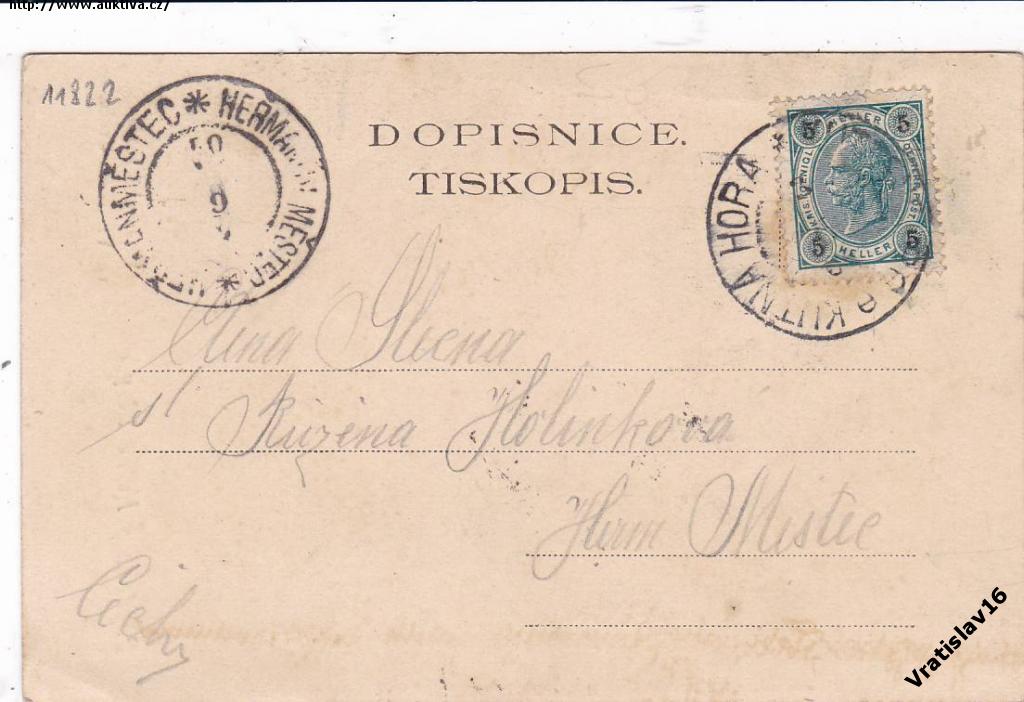 http://www.auktiva.cz/
11822
HEŘMANMĚSTEC * HEŘMANŮV MĚSTEC *
9
DOPISNICE.
TISKOPIS.
KUTNÁ HORA *
5 HELLER 5
5 HELLER 5
Slečna
Růžena Holinková
Herm Městec
Čechy
Vratislav16